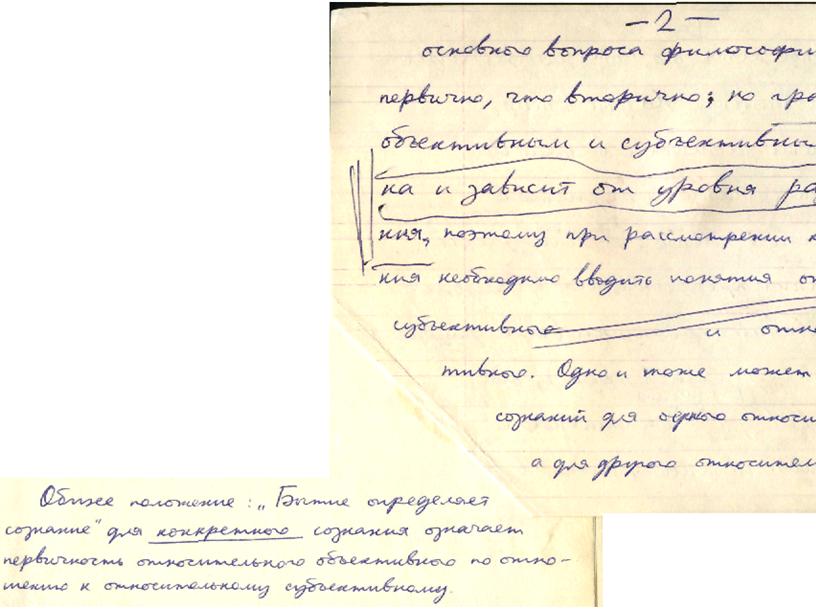 — 2 —
основного вопроса философии
первично, что вторично; но гра
объективным и субъективным
на и зависит от уровня ра
ния, поэтому при рассмотрении
ния необходимо вводить понятия от
субъективного и отно
тивного. Одно и тоже может
сознаний для одного относи
а для другого относител
Общее положение: „Бытие определяет
сознание" для конкретного сознания означает
первичность относительного объективного по отно-
шению к относительному субъективному.